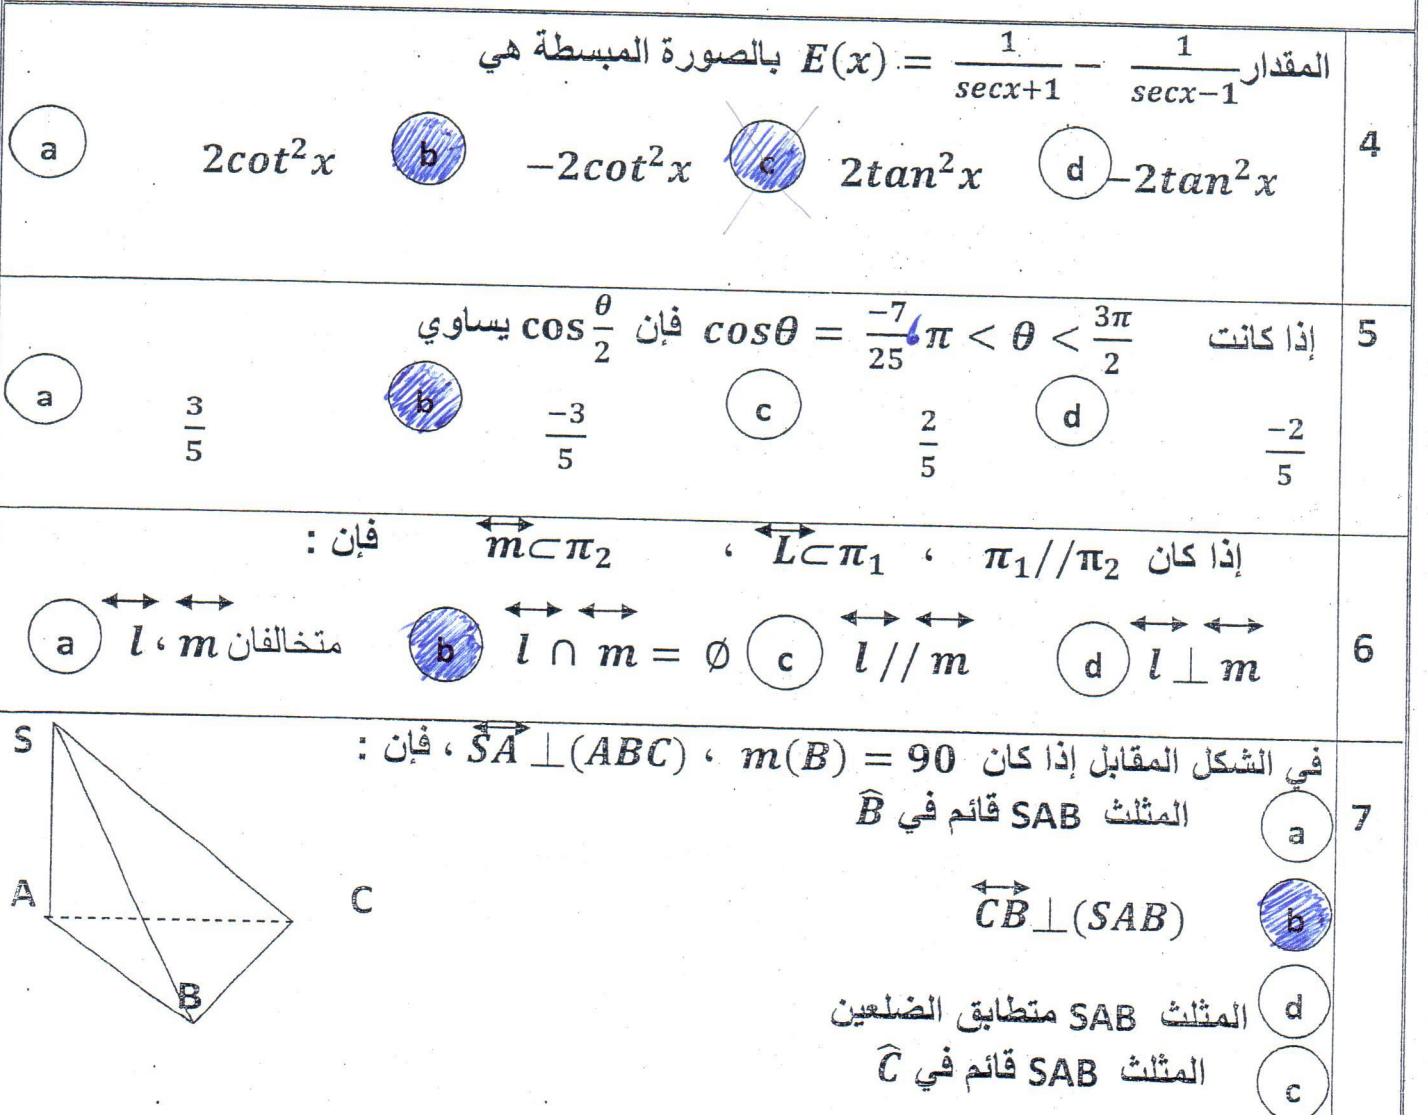 4 المقدار E(x) = \frac{1}{secx+1} - \frac{1}{secx-1} بالصورة المبسطة هي
a 2cot²x b −2cot²x c 2tan²x d −2tan²x
5 إذا كانت cosθ = \frac{-7}{25} ، π < θ < \frac{3π}{2} فإن cos \frac{θ}{2} يساوي
a \frac{3}{5} b \frac{-3}{5} c \frac{2}{5} d \frac{-2}{5}
6 إذا كان π₁//π₂ ، L⊂π₁ ، m⊂π₂ فإن :
a l ، m متخالفان b l ∩ m = ∅ c l // m d l ⊥ m
7 في الشكل المقابل إذا كان m(B) = 90 ، SA ⊥(ABC) ، فإن :
a المثلث SAB قائم في B̂
b CB⊥(SAB)
d المثلث SAB متطابق الضلعين
c المثلث SAB قائم في Ĉ
S
A
C
B